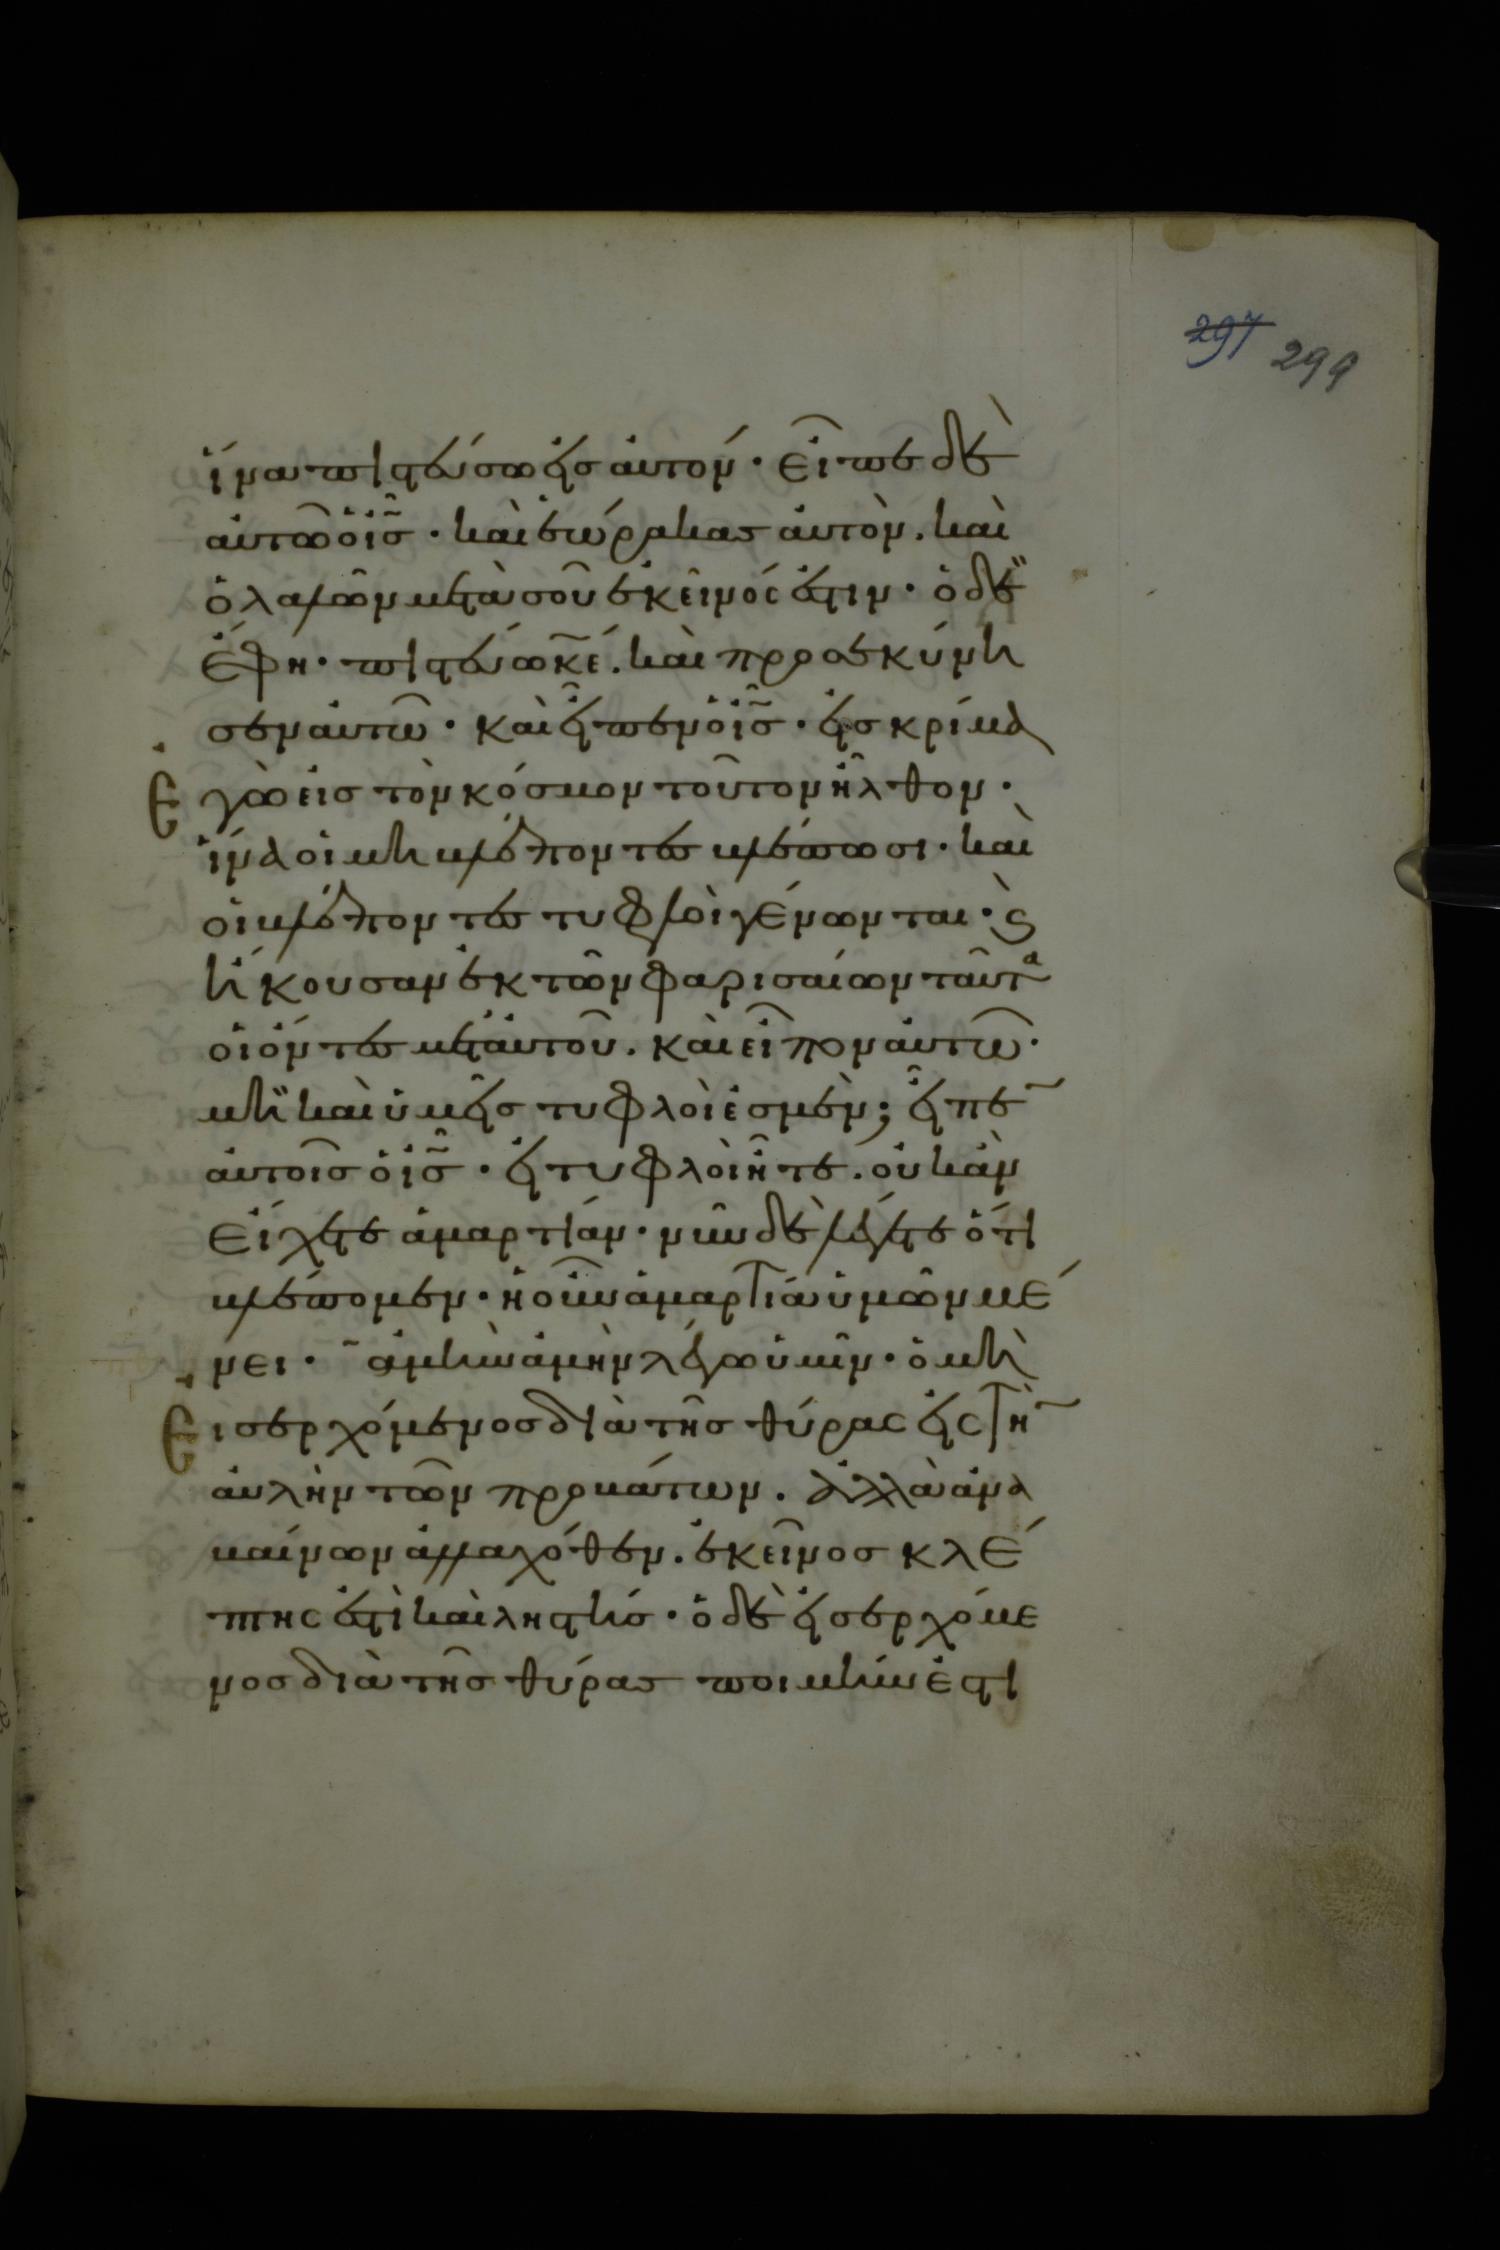 297 299
ἵνα πιστεύσω εἰς αὐτόν· εἶπε δὲ
αὐτῶ ὁ ἰ̅ς̅· καὶ ἑώρακας αὐτὸν. καὶ
ὁ λαλῶν μετὰ σοῦ ἐκεῖνός ἐστιν· ὁ δὲ
ἔφη· πιστεύω κ̅ε̅. καὶ προσεκύνη
σεν αὐτῶ· καὶ εἶπεν ὁ ἰ̅ς̅· εἰς κρίμα
ἐγὼ εἰς τὸν κόσμον τοῦτον ἦλθον·
ἵνα οἱ μὴ βλέποντες βλέπωσι· καὶ
οἱ βλέποντες τυφλοὶ γένωνται· ϛ̀
ἤκουσαν ἐκ τῶν φαρισαίων ταῦτα
οἱ ὄντες μετ αὐτοῦ. καὶ εἶπον αὐτῶ·
μὴ καὶ ὑμεῖς τυφλοὶ ἐσμὲν; εἶπε
αὐτοῖς ὁ ἰ̅ς̅· εἰ τυφλοὶ ἦτε. οὐκ ἂν
εἴχετε ἁμαρτίαν· νῦν δὲ λέγετε ὅτι
βλέπομεν· ἡ οὖν ἁμαρτία ὑμῶν μέ
νει· ἀμὴν ἀμὴν λέγω ὑμῖν· ὁ μὴ
Εἰσερχόμενος διὰ τῆς θύρας εἰς τὴν
αὐλὴν τῶν προβάτων. ἀλλὰ ἀνα
βαίνων ἀλλαχόθεν. ἐκεῖνος κλέ
πτης ἐστὶ καὶ ληστής· ὁ δὲ εἰσερχόμε
νος διὰ τῆς θύρας ποιμήν ἐστι